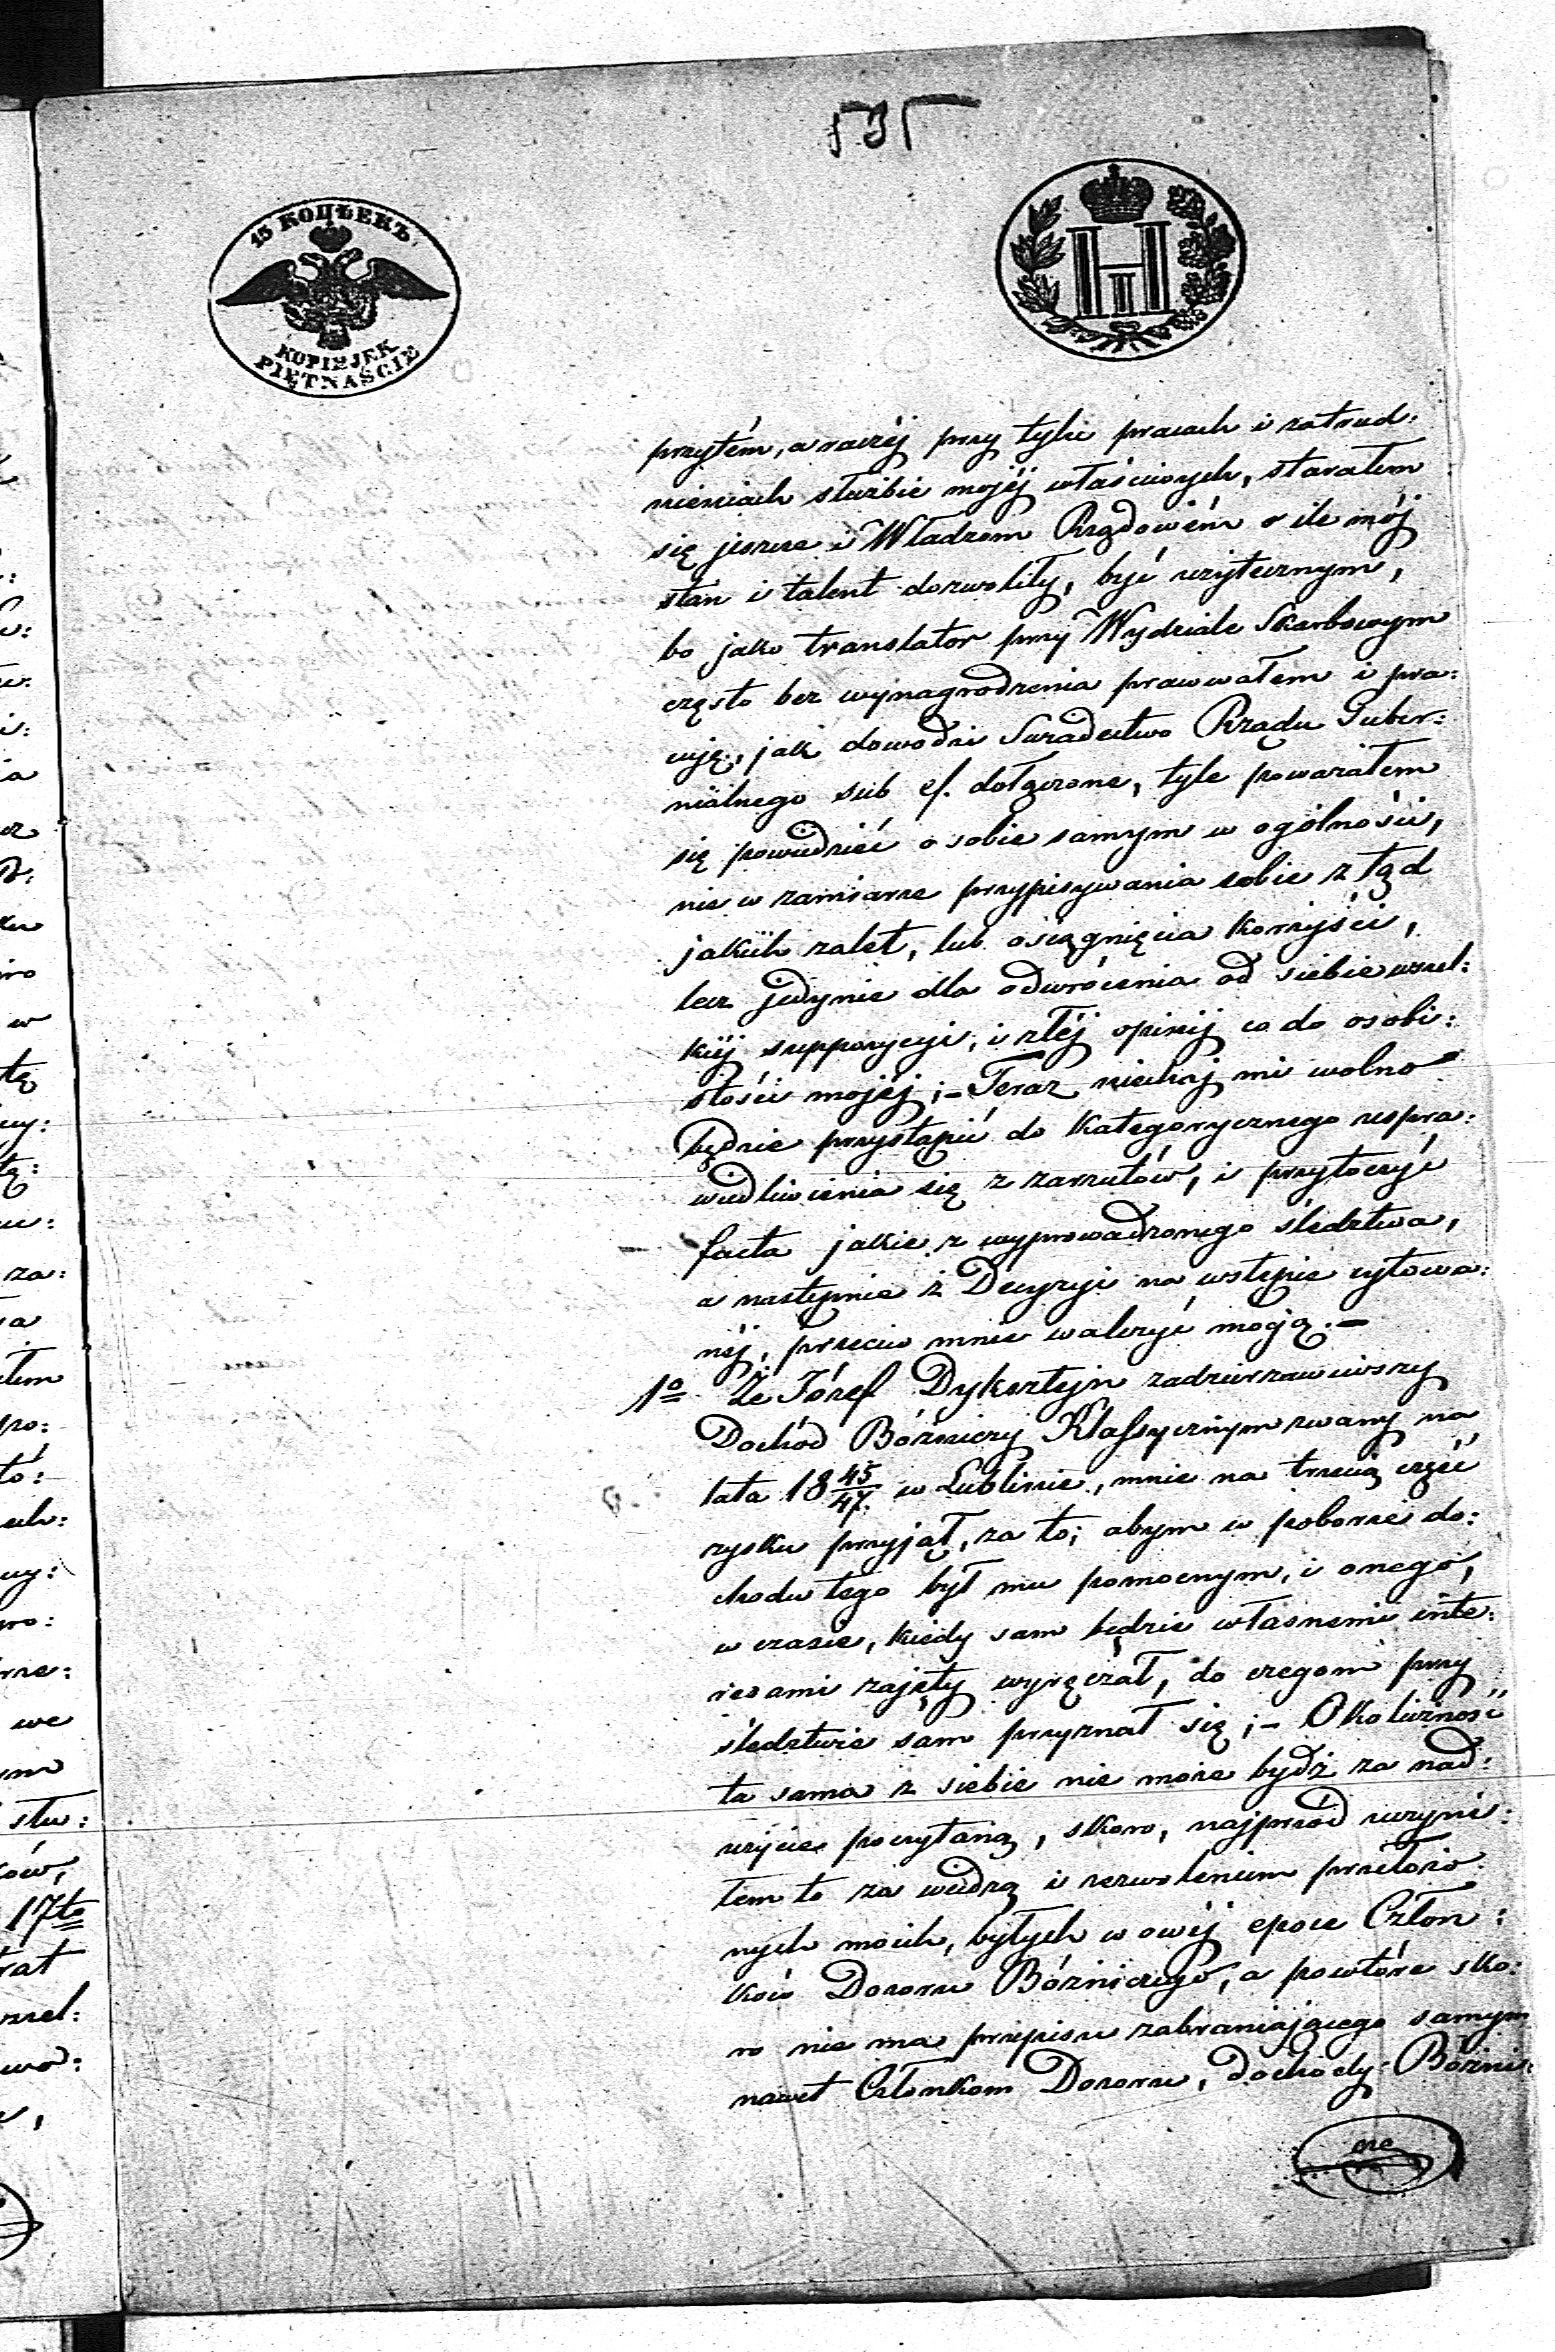 535
15 КОПѢЕКЪ
KOPIEJEK
PIĘTNAŚCIE
przytém, a raczéj przy tylu pracach i zatrud:
nieniach służbie mojéj właściwych, starałem
się jeszcze i Władzom Rządowém o ile mój
stan i talent dozwoliły, być użytecznym,
bo jako translator przy Wydziale Skarbowym
często bez wynagrodzenia pracowałem i pra:
cuję, jak dowodzi Swiadectwo Rządu Guber:
nialnego sub dołączone, tyle poważałem
się powiedzieć o sobie samym w ogólności,
nie w zamiarze przypisywania sobie z tąd
jakich zalet, lub osiągnięcia korzyści,
lecz jedynie dla odwrócenia od siebie wszel:
kiéj suppozycyi, i złéj opinij co do osobi:
stości mojéj;- Teraz niechaj mi wolno
będzie przystąpić do kategorycznego uspra:
wiedliwienia się z zarzutów, i przytoczyć
facta jakie z wyprowadzonego śledztwa,
a następnie z Decyzyi na wstępie cytowa:
néj, przeciw mnie walczyć mogą.-
1o Że Józef Dyksztejn zadzierzawiwszy
Dochód Bóżniczy Klassycznym zwany na
lata 18 45/47 w Lublinie, mnie na trzecią część
zysku przyjął, za to; abym w poborze do:
chodu tego był mu pomocnym, i onego,
w czasie, kiedy sam będzie własnemi inte:
resami zajęty wyręczał, do czegom przy
śledztwie sam przyznał się;- Okoliczność
ta sama z siebie nie może bydź za nad:
użycie poczytaną, skoro, najprzód uczyni:
łem to za wiedzą i zezwoleniem przełożo:
nych moich, byłych w owéj epoce Człon:
ków Dozoru Bóżniczego, a powtóre sko:
ro nie ma przepisu zabraniającego samym
nawet Członkom Dozoru, dochody Bóżni: